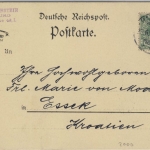 Deutsche Reichspost.
Postkarte.
An
Ihre Hochwohlgeboren
Frl. Marie von
in
Essek
Kroatien